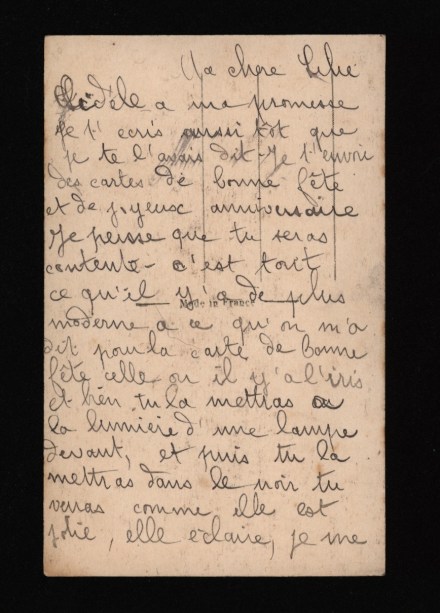 Ma chere Lilie
Fidéle a ma promesse
je t'ecris aussi tôt que
je te l'avais dit - Je t'envoi
des cartes de bonne fête
et de joyeux anniversaire
Je pense que tu seras
contente - c'est tout
ce qu'il y'a de plus
Made in France
moderne a ce qu'on m'a
dit pour la carte de Bonne
fête celle ou il y'a l'iris
et bien tu la mettras a
la lumiere d'une lampe
devant, et puis tu la
mettras dans le noir tu
veras comme elle est
jolie, elle éclaire, je me